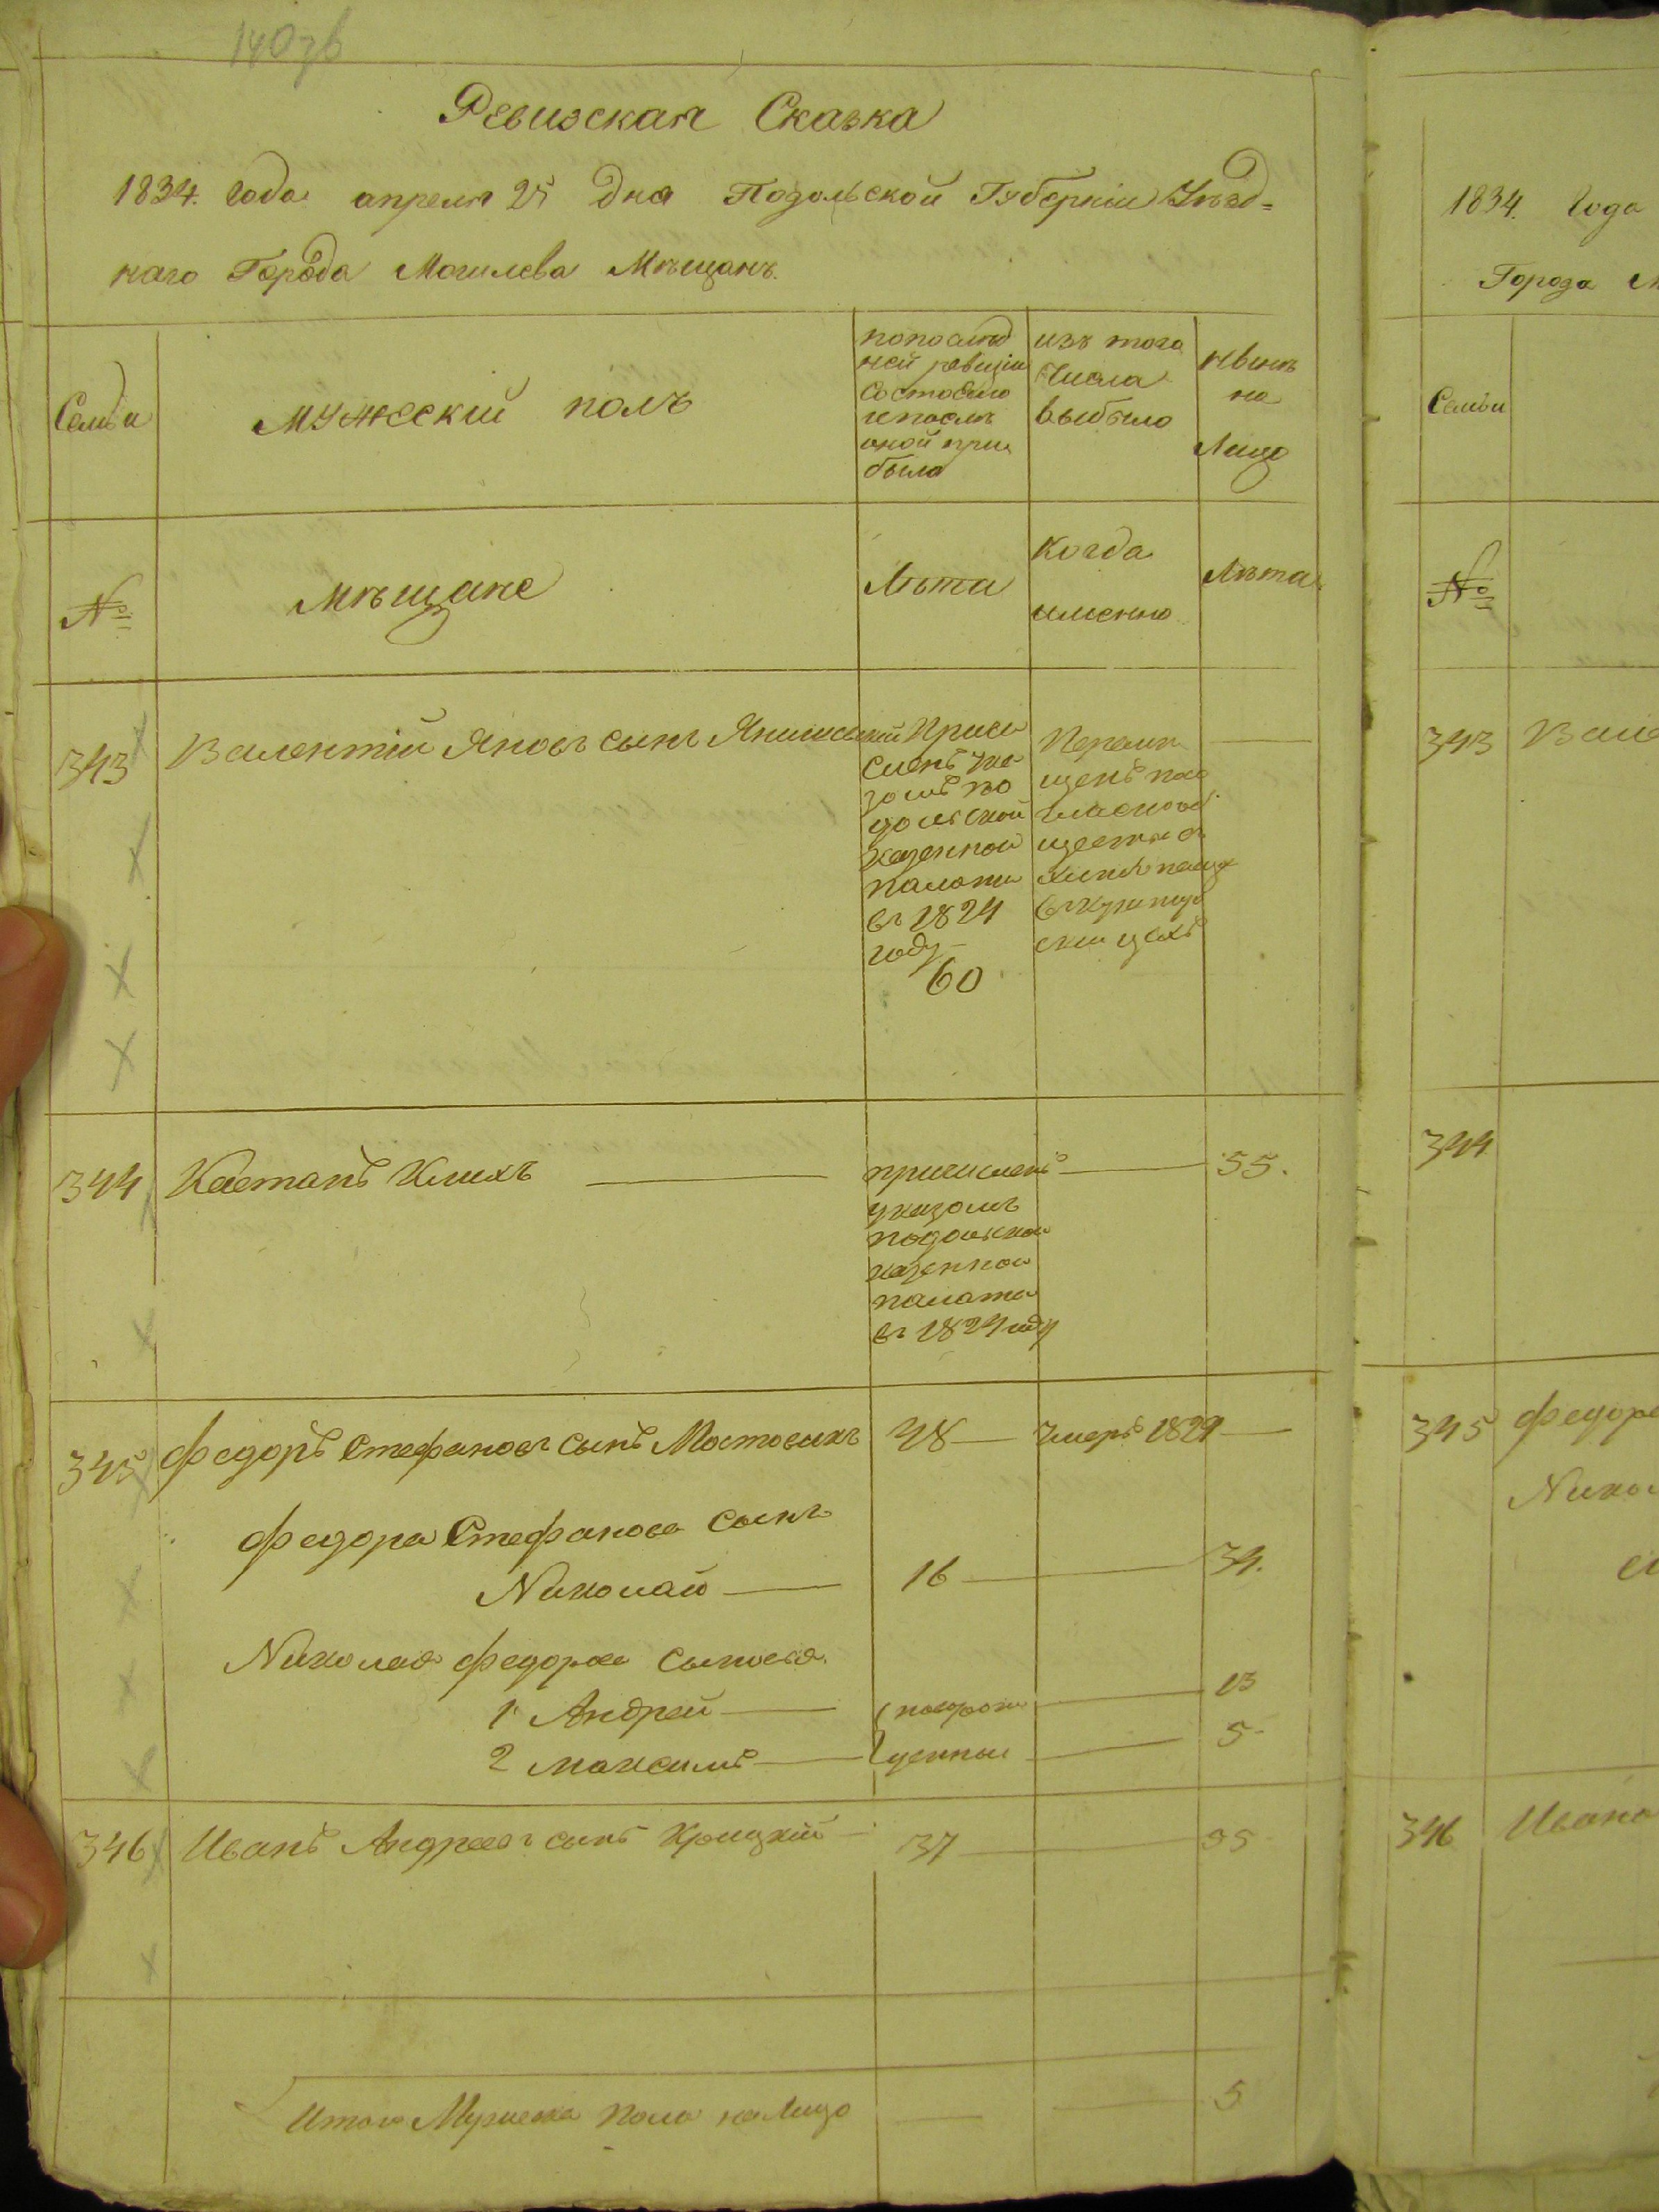 140зв
Ревизская Сказка
1834. Года апреля 25 дня Подольской Губерніи Уѣзд=
наго Города Могилева Мѣщанъ.
Семьи
мужескій полъ
по послѣд
ней ревизіи
состояло
и послѣ
оной при
было
изъ того
числа
выбыло
нынѣ
на
Лицо
№
мѣщане
Лѣта
Когда
именно
Лѣта
343
Валентій Яновъ сынъ
Причи
сленъ ука
зомъ по
дольской
казенной
палаты
въ 1824
году
60
Перемѣ
щенъ
цехъ
344
Каетанъ Клихъ
причисленъ
указомъ
подольской
казенной
палаты
въ 1824 году
55.
345
Федоръ Стефановъ сынъ
48
Умеръ 1829
Федора Стефанова сынъ
Николай
16
34.
Николая Федорова сыновья
1 Андрей
новорож
13
2 максимъ
денныи
5
346
Иванъ Андреевъ сынъ Крицкій
37
55
Итого Мужеска пола на Лицо
5
1834. Года
Города
Семьи
№
343
344
345
346